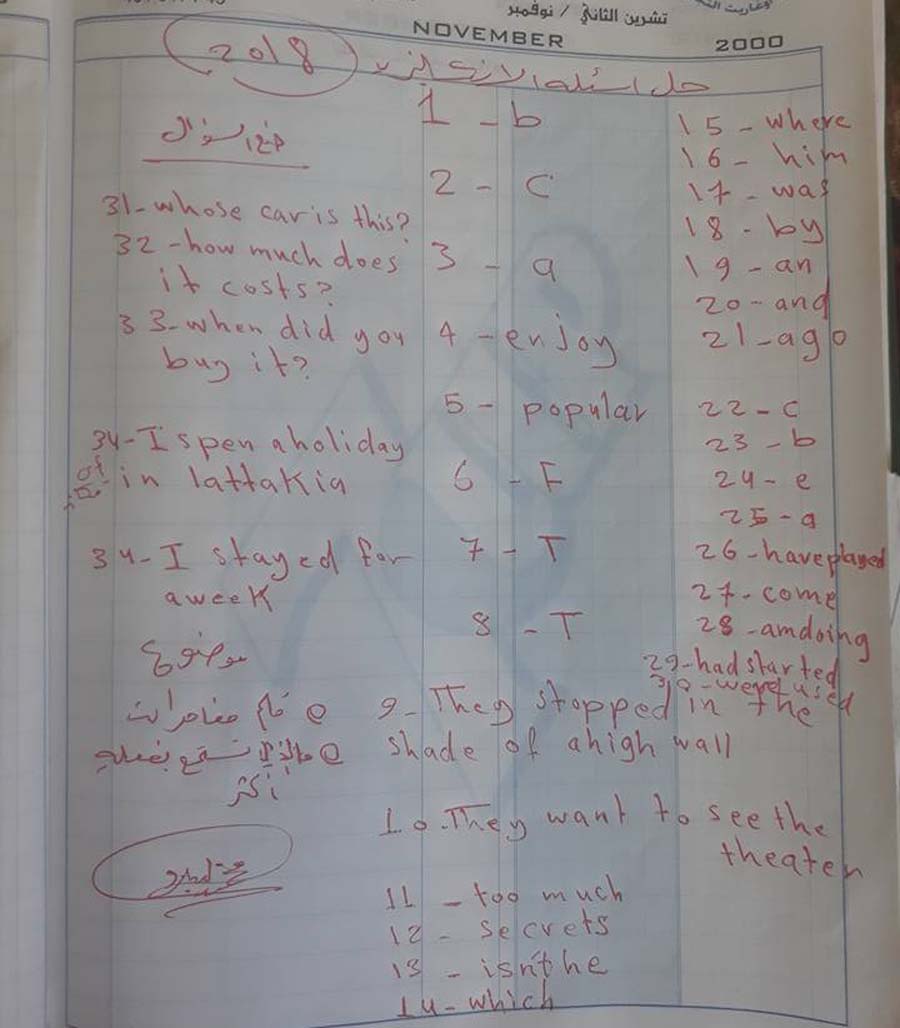 تشرين الثاني / نوفمبر
NOVEMBER
2000
حل اسئلة الانكليزي 2018
1 - b
2 - C
3 - a
4 - enjoy
5 - popular
6 - F
7 - T
8 - T
9 - They stopped in the
shade of ahigh wall
10. They want to see the
theater
11 - too much
12 - secrets
13 - isn't he
14 - which
15 - where
16 - him
17 - was
18 - by
19 - an
20 - and
21 - ago
22 - c
23 - b
24 - e
25 - a
26 - have played
27 - come
28 - am doing
29 - had started
30 - were used
31 - whose car is this?
32 - how much does
it costs?
33 - when did you
buy it?
34 - I spen aholiday
in lattakia
34 - I stayed for
aweek
موضوع